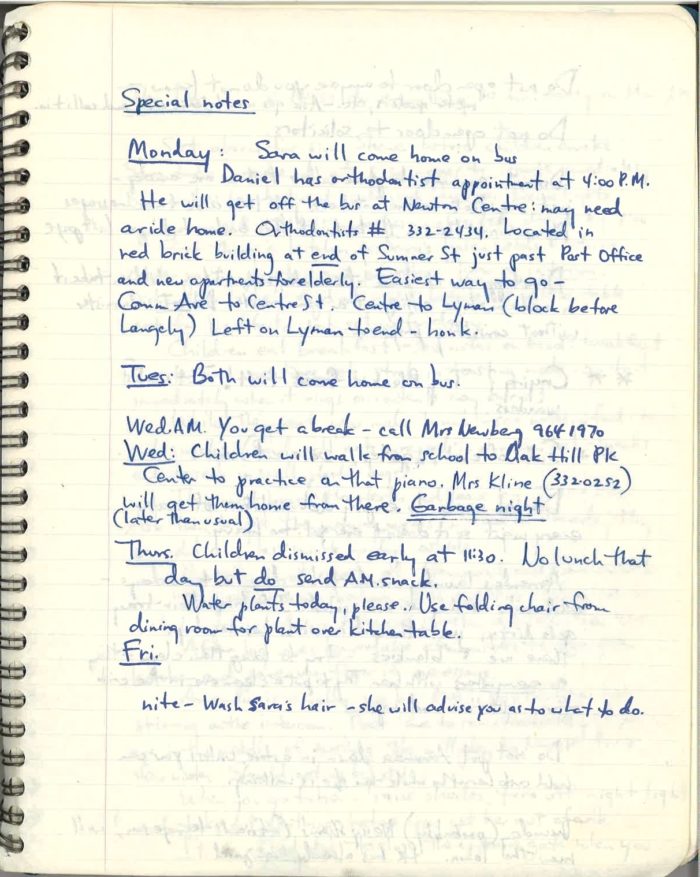 Special notes
Monday: Sara will come home on bus
Daniel has orthodontist appointment at 4:00 P.M.
He will get off the bus at Newton Centre: may need
a ride home. Orthodontists # 332-2434. Located in
red brick building at end of Sumner St just past Post Office
and new apartments for elderly. Easiest way to go -
Comm Ave to Centre St. Centre to Lyman (block before
Langely) Left on Lyman to end - honk.
Tues: Both will come home on bus.
Wed. A.M. You get a break - call Mrs Newberg 964 1970
Wed: Children will walk from school to Oak Hill Pk
Center to practice on that piano. Mrs Kline (332-0252)
will get them home from there. Garbage night
(later than usual)
Thurs. Children dismissed early at 11:30. No lunch that
day but do send A.M. snack.
Water plants today, please. Use folding chair from
dining room for plant over kitchen table.
Fri.
nite - Wash Sara's hair - she will advise you as to what to do.